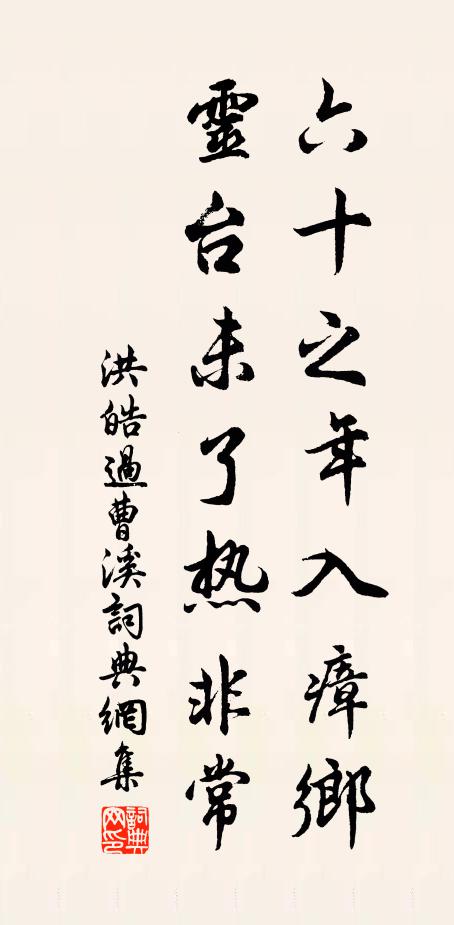 六十之年入瘴鄉
靈台未了热非常
洪皓過曹溪詞典網集
詞典網印